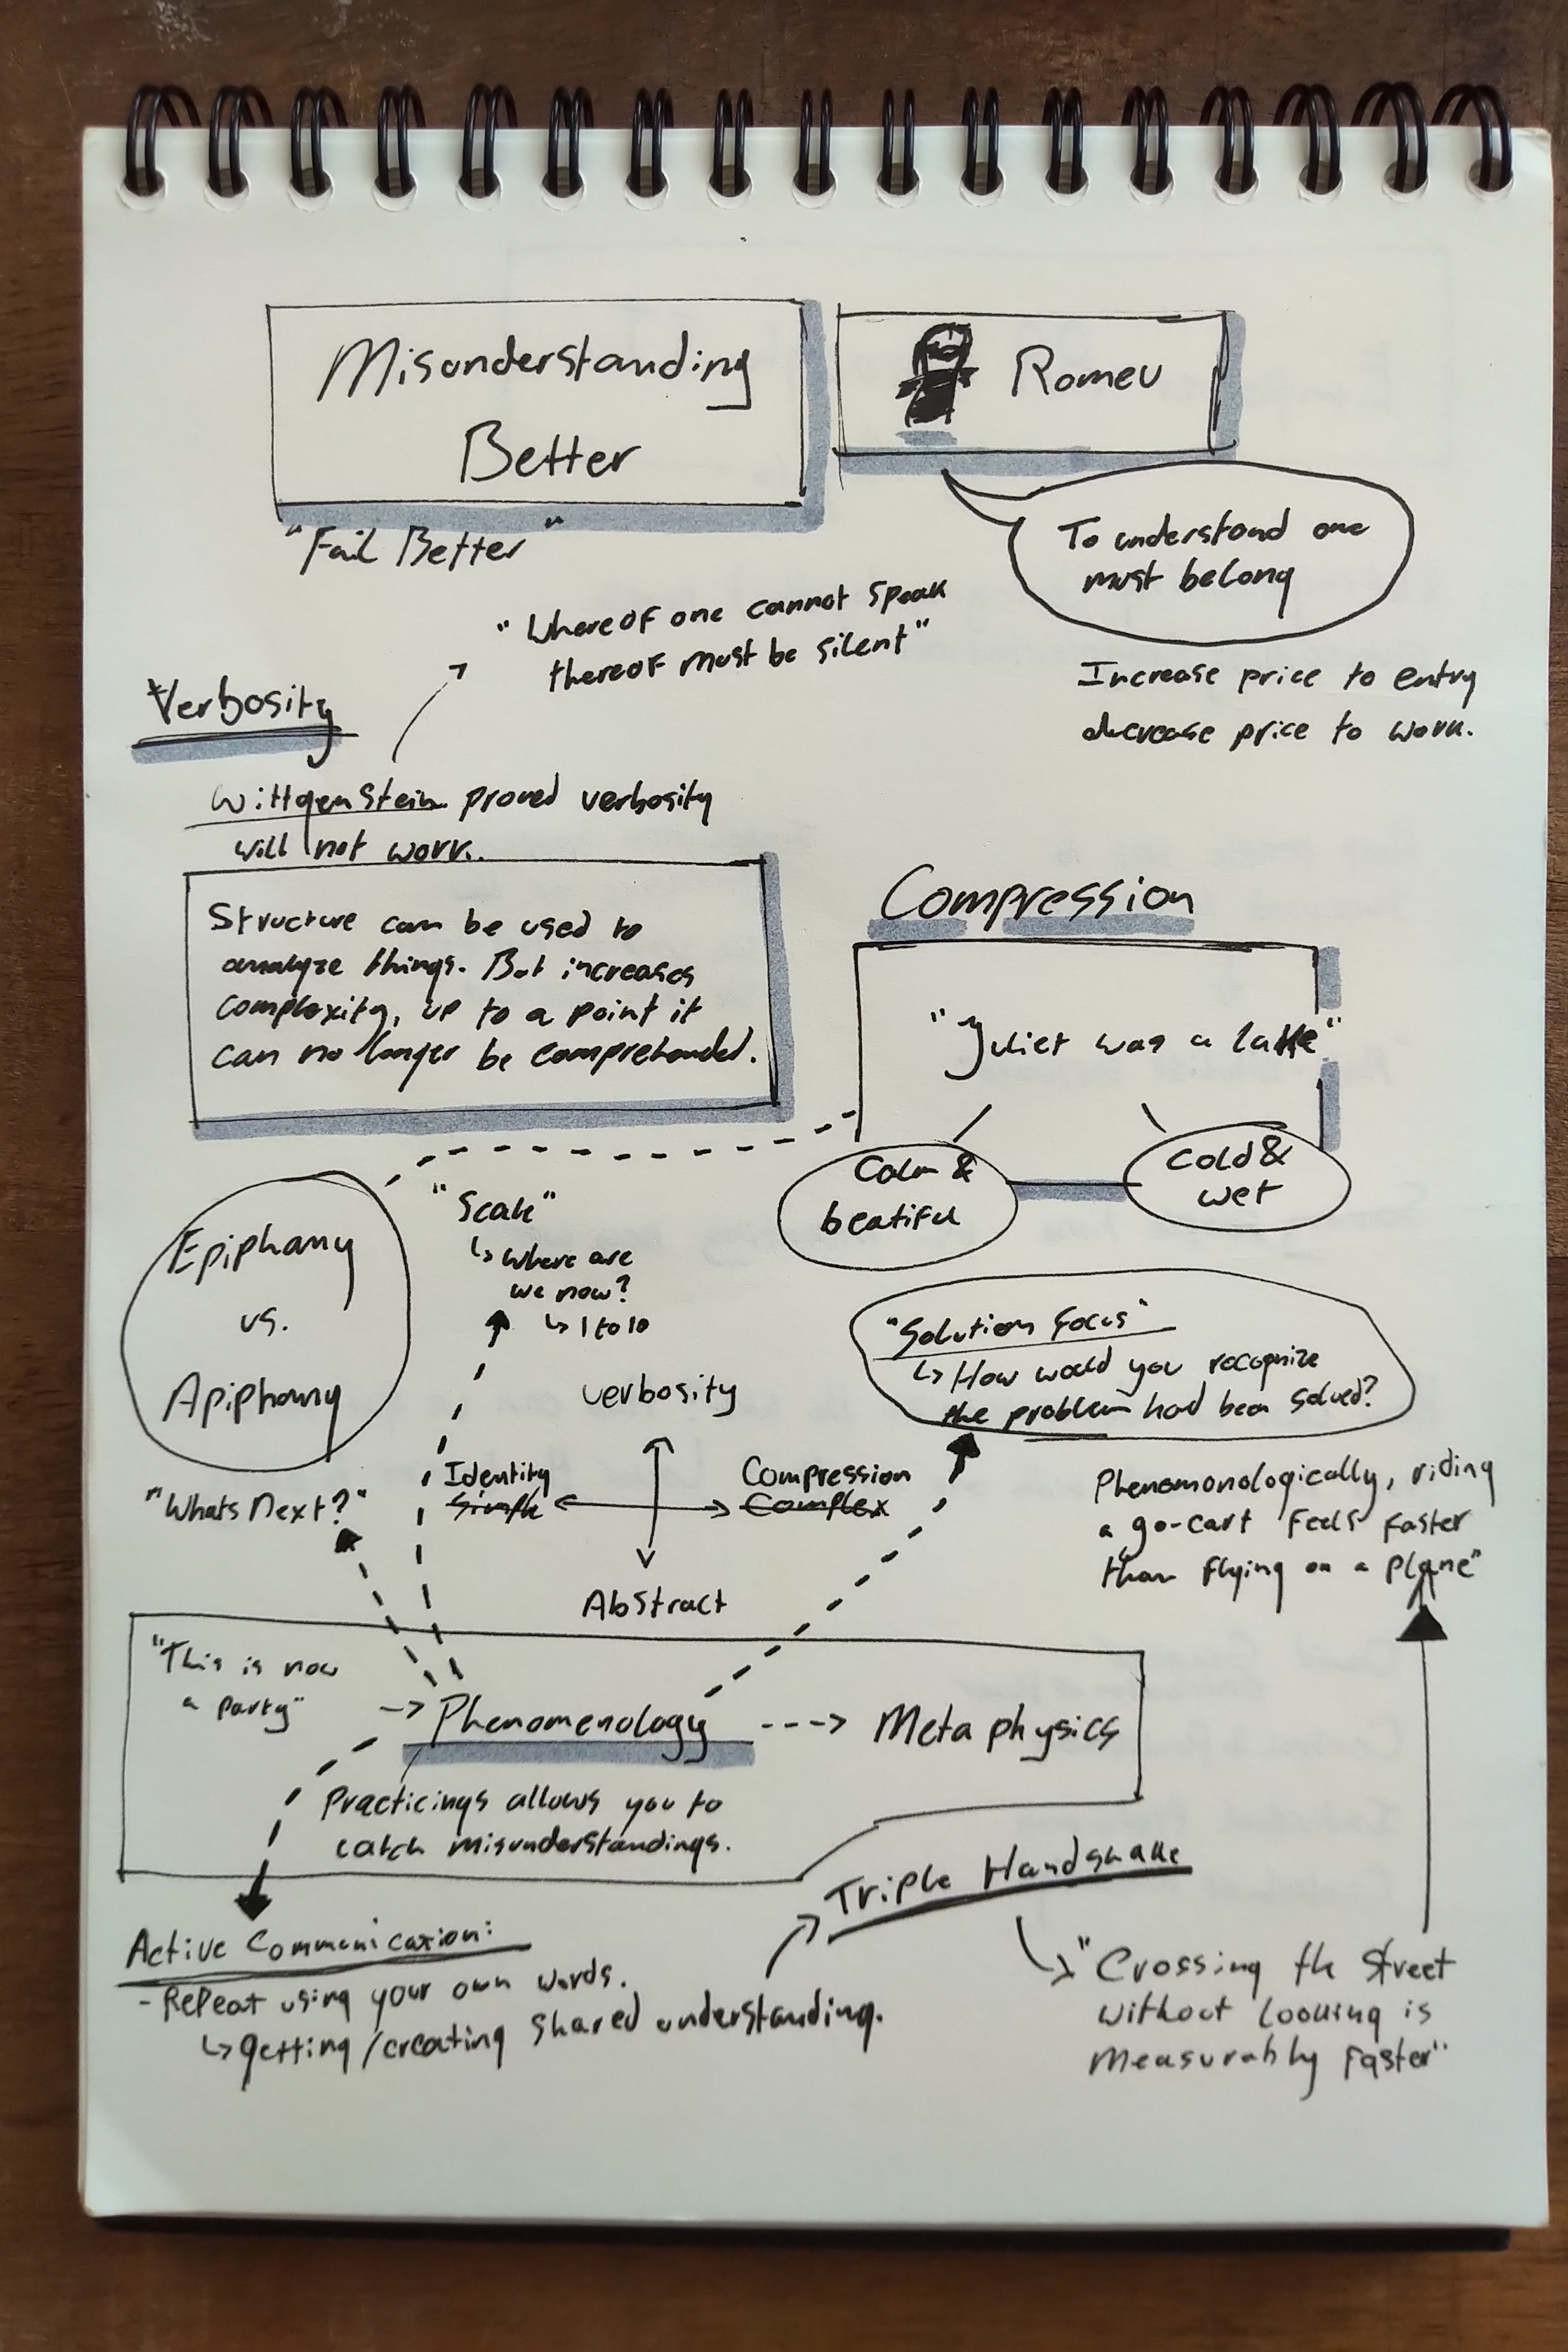 Misunderstanding
Better
Romeu
"Fail Better"
To understand one
must belong
"Whereof one cannot speak
thereof must be silent"
Increase price to entry
decrease price to work.
Verbosity
Wittgenstein proved verbosity
will not work.
Structure can be used to
analyze things. But increases
complexity, up to a point it
can no longer be comprehended.
Compression
"Juliet was a lake"
Calm &
beatiful
Cold &
wet
Epiphany
vs.
Apiphany
"Scale"
↳ Where are
we now?
↳ 1 to 10
"Solution Focus"
↳ How would you recognize
the problem had been solved?
verbosity
Identity
Simple
Compression
Complex
Abstract
"Whats Next?"
Phenomonologically, riding
a go-cart feels faster
than flying on a plane"
"This is now
a party"
→ Phenomenology ---> Metaphysics
Practicings allows you to
catch misunderstandings.
Triple Handshake
Active Communication:
- Repeat using your own words.
↳ getting/creating shared understanding.
"Crossing the street
without looking is
measurably faster"